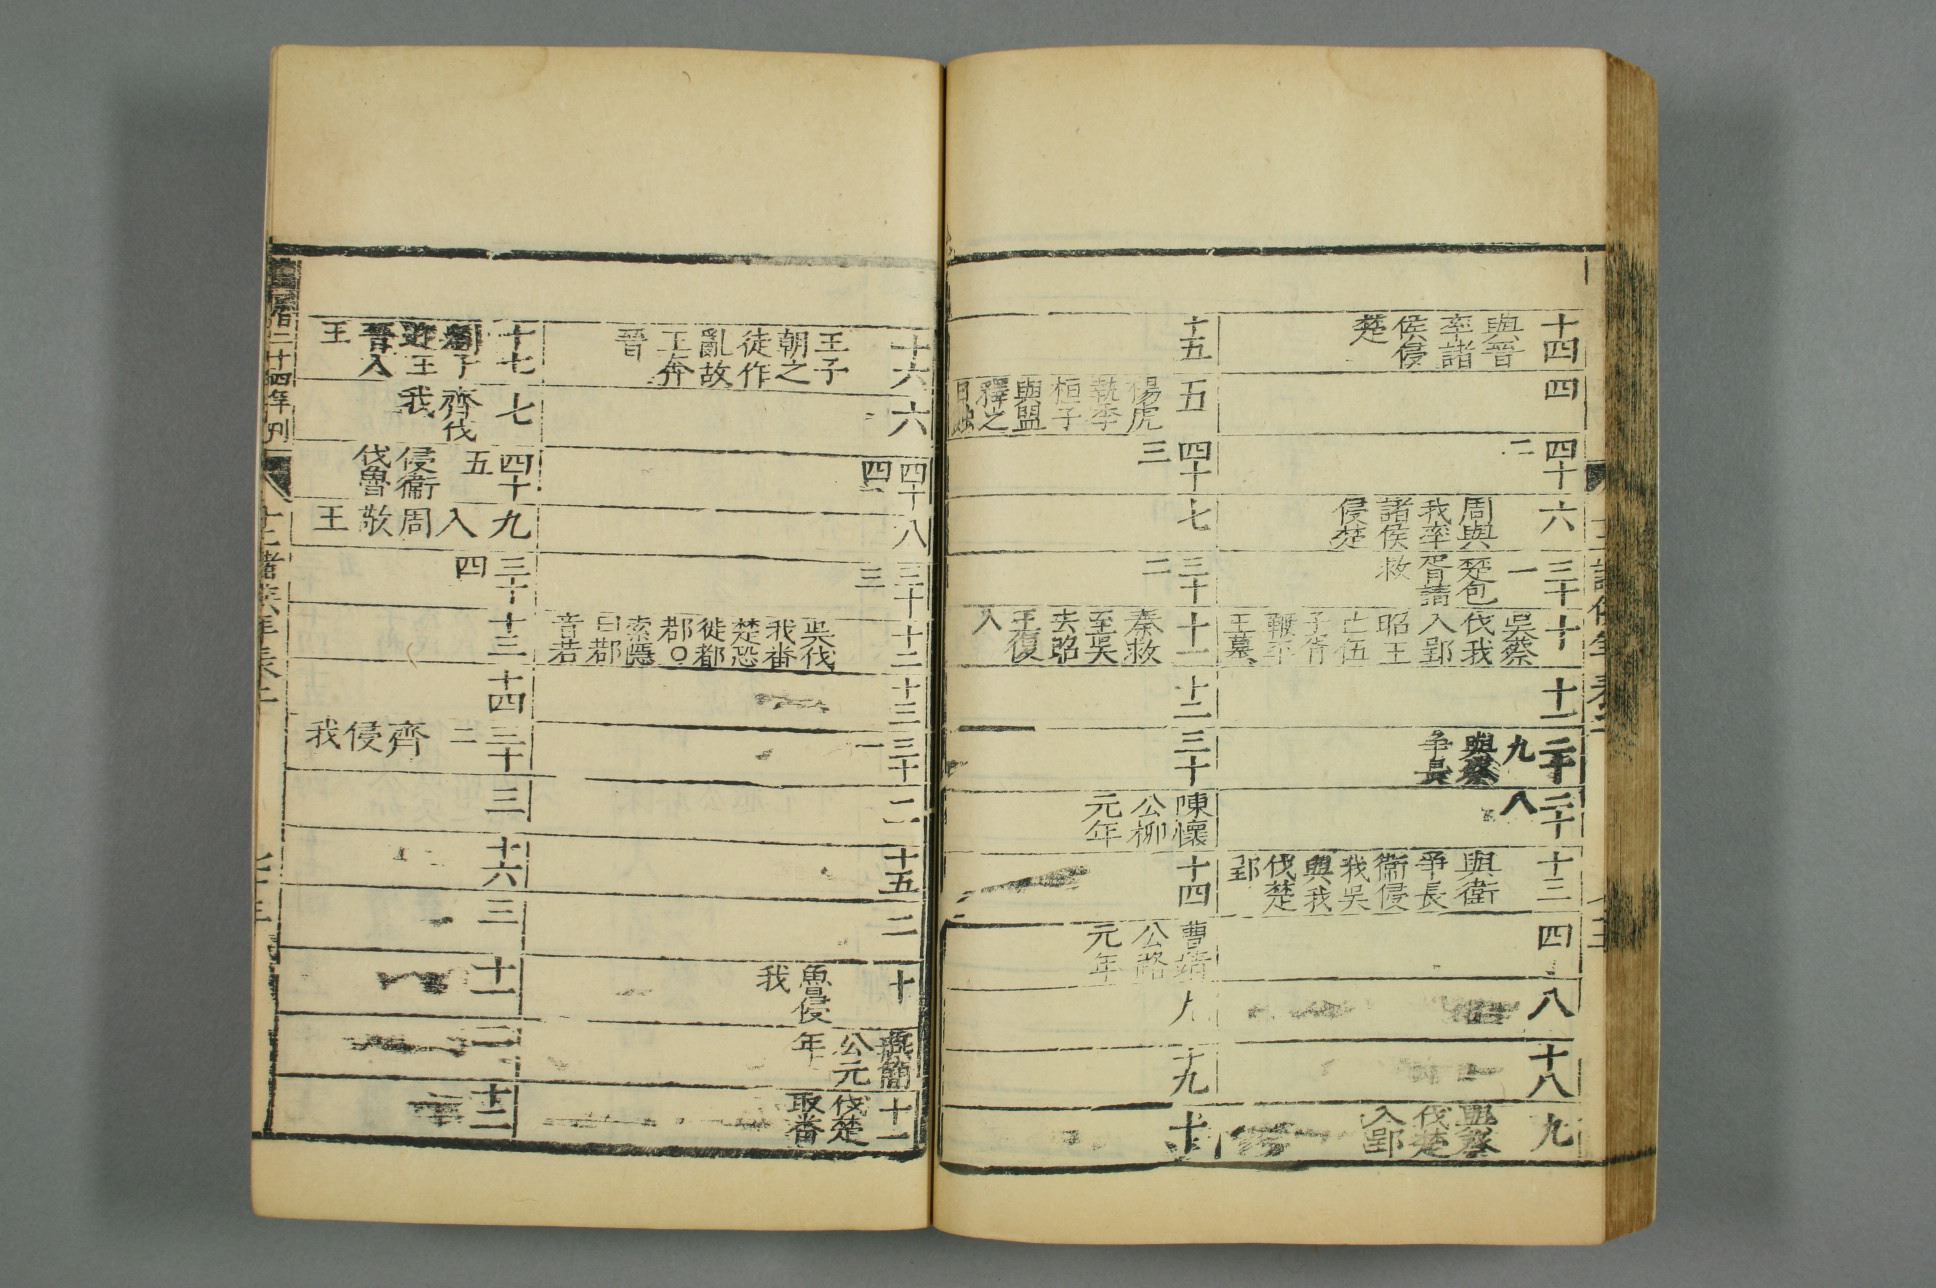 十四
與晉
率諸
侯侵
楚
四
四十
二
六
周與
我率
諸侯
侵楚
三十
一
楚包
胥請
救
十
吳蔡
伐我
入郢
昭王
亡伍
子胥
鞭平
王墓
十一
二十
九
與蔡
爭長
二十
八
十三
與衛
爭長
衛侵
我吳
與我
伐楚
郢
四
八
十八
九
與蔡
伐楚
入郢
十五
五
陽虎
執季
桓子
與盟
釋之
日蝕
四十
三
七
三十
二
十一
秦救
至吳
去昭
王復
入
十二
三十
陳懷
公柳
元年
十四
曹靖
公路
元年
九
十九
十
十六
王子
朝之
徒作
亂故
王奔
晉
六
四十
四
八
三十
三
十二
吳伐
我番
楚恐
徙都
鄀○
索隱
曰鄀
音若
十三
三十
一
二
十五
二
十
魯侵
我
燕簡
公元
年
十一
伐楚
取番
十七
劉子
迎王
晉入
王
七
齊伐
我
四十
五
侵衛
伐魯
九
入
周
敬
王
三十
四
十三
十四
三十
二
齊
侵
我
三
十六
三
十一
二
十二
萬曆二十四年刊
十二諸侯年表二